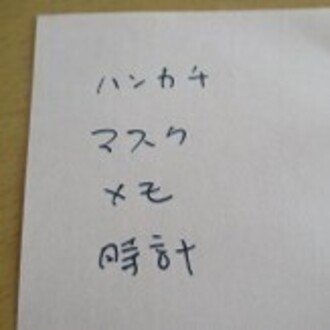 ハンカチ
マスク
メモ
時計